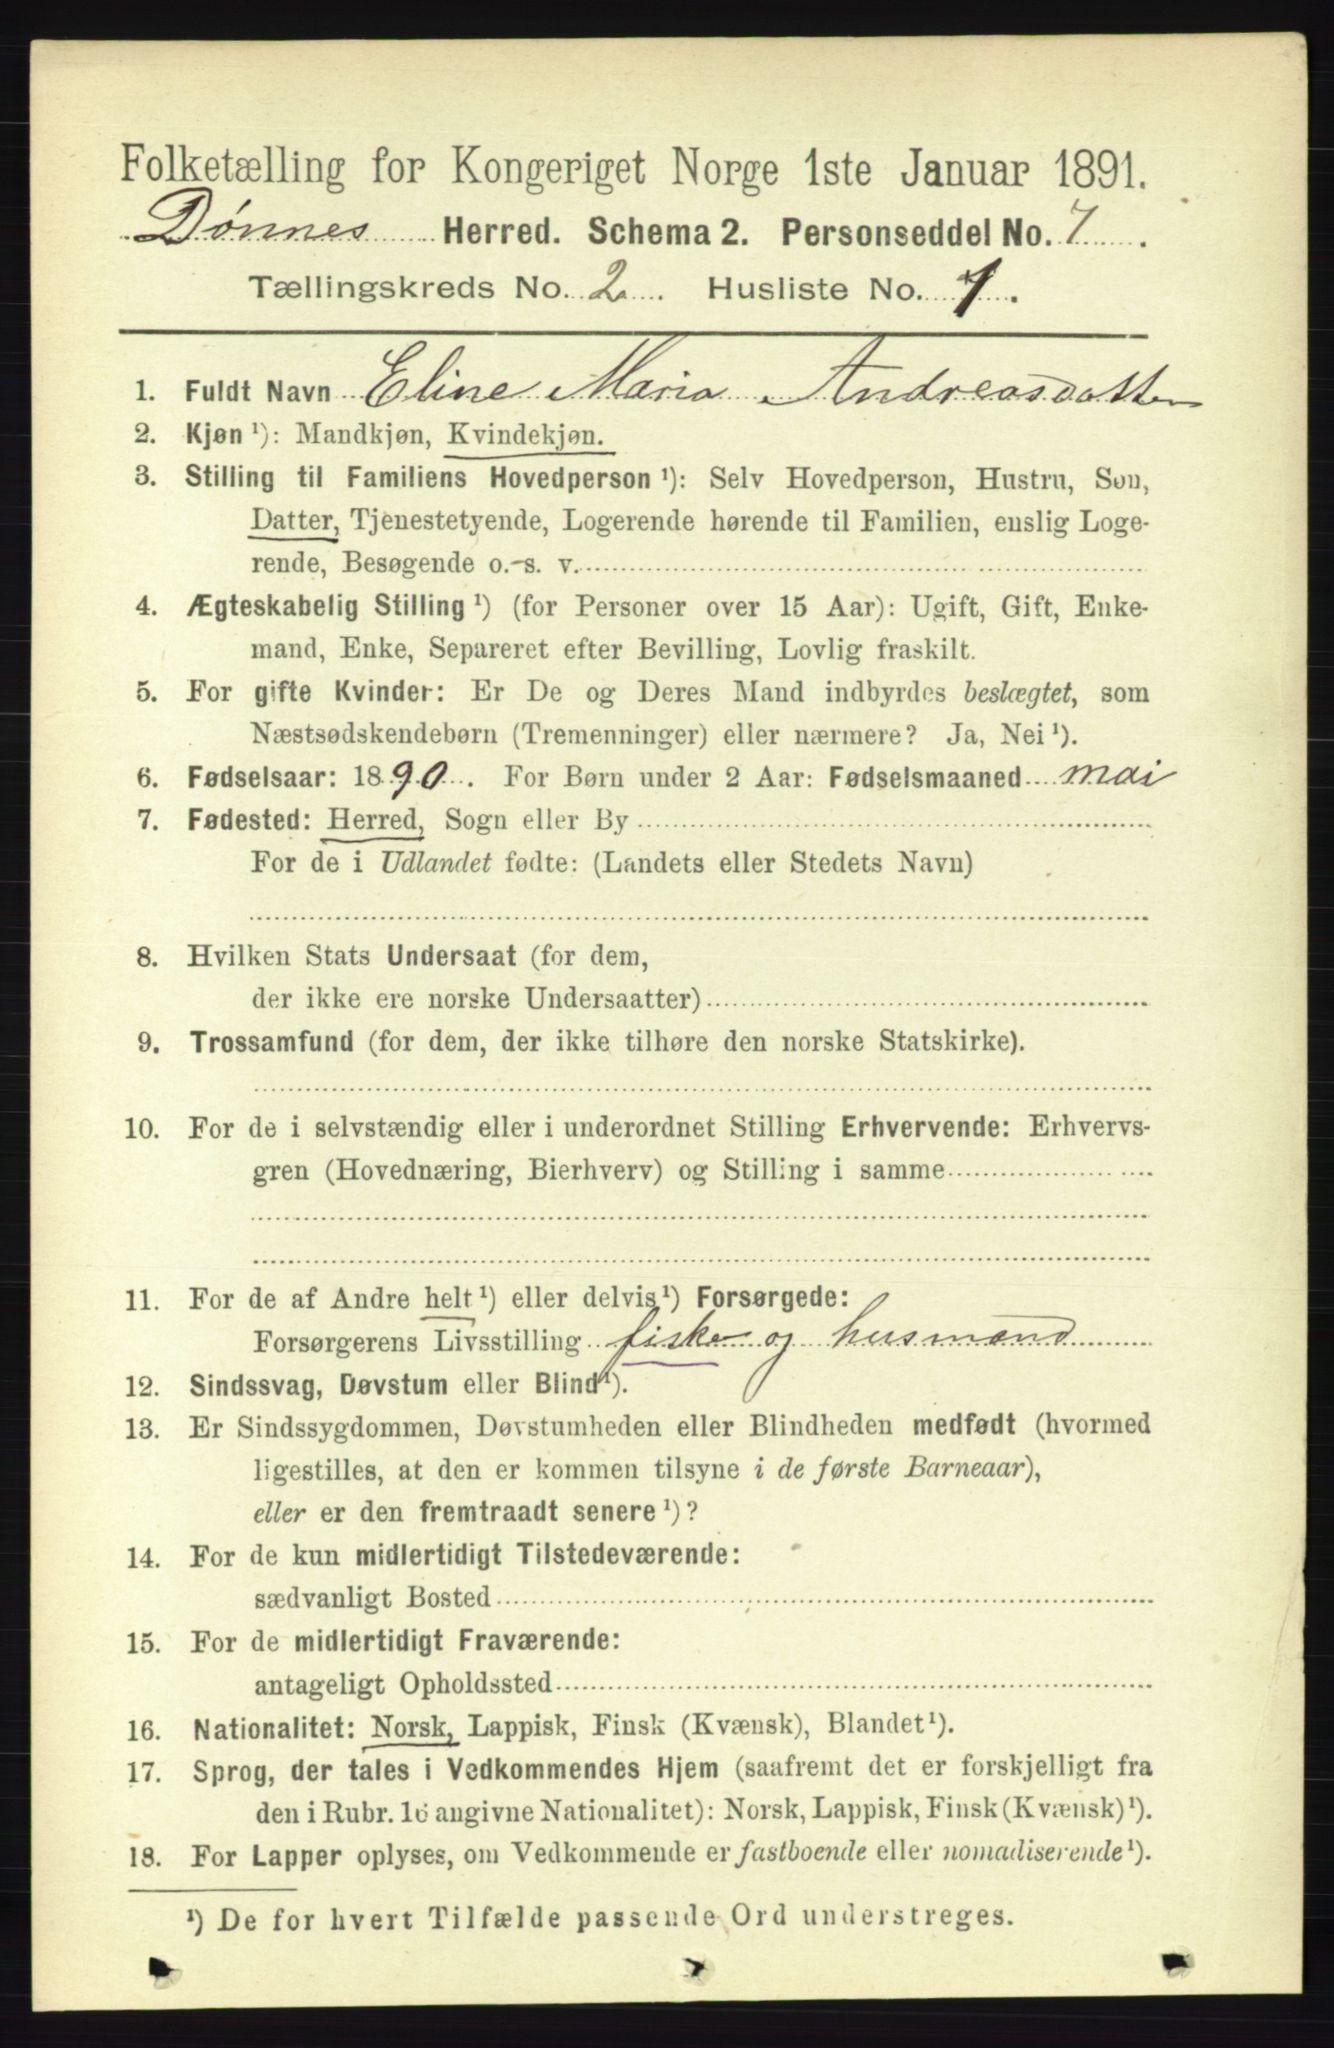 Folketælling for Kongeriget Norge 1ste Januar 1891.
Dönnes Herred. Schema 2. Personseddel No. 7
Tællingskreds No. 2. Husliste No. 1.
1. Fuldt Navn Eline Maria Andreasdatter
2. Kjøn ¹): Mandkjøn, Kvindekjøn.
3. Stilling til Familiens Hovedperson ¹): Selv Hovedperson, Hustru, Søn,
Datter, Tjenestetyende, Logerende hørende til Familien, enslig Loge-
rende, Besøgende o. s. v.
4. Ægteskabelig Stilling ¹) (for Personer over 15 Aar): Ugift, Gift, Enke-
mand, Enke, Separeret efter Bevilling, Lovlig fraskilt.
5. For gifte Kvinder: Er De og Deres Mand indbyrdes beslægtet, som
Næstsødskendebørn (Tremenninger) eller nærmere? Ja, Nei ¹).
6. Fødselsaar: 1890. For Børn under 2 Aar: Fødselsmaaned mai
7. Fødested: Herred, Sogn eller By
For de i Udlandet fødte: (Landets eller Stedets Navn)
8. Hvilken Stats Undersaat (for dem,
der ikke ere norske Undersaatter)
9. Trossamfund (for dem, der ikke tilhøre den norske Statskirke).
10. For de i selvstændig eller i underordnet Stilling Erhvervende: Erhvervs-
gren (Hovednæring, Bierhverv) og Stilling i samme
11. For de af Andre helt ¹) eller delvis ¹) Forsørgede:
Forsørgerens Livsstilling fisker og husmand
12. Sindssvag, Døvstum eller Blind ¹).
13. Er Sindssygdommen, Døvstumheden eller Blindheden medfødt (hvormed
ligestilles, at den er kommen tilsyne i de første Barneaar),
eller er den fremtraadt senere ¹)?
14. For de kun midlertidigt Tilstedeværende:
sædvanligt Bosted
15. For de midlertidigt Fraværende:
antageligt Opholdssted
16. Nationalitet: Norsk, Lappisk, Finsk (Kvænsk), Blandet ¹).
17. Sprog, der tales i Vedkommendes Hjem (saafremt det er forskjelligt fra
den i Rubr. 16 angivne Nationalitet): Norsk, Lappisk, Finsk (Kvænsk) ¹).
18. For Lapper oplyses, om Vedkommende er fastboende eller nomadiserende ¹).
¹) De for hvert Tilfælde passende Ord understreges.